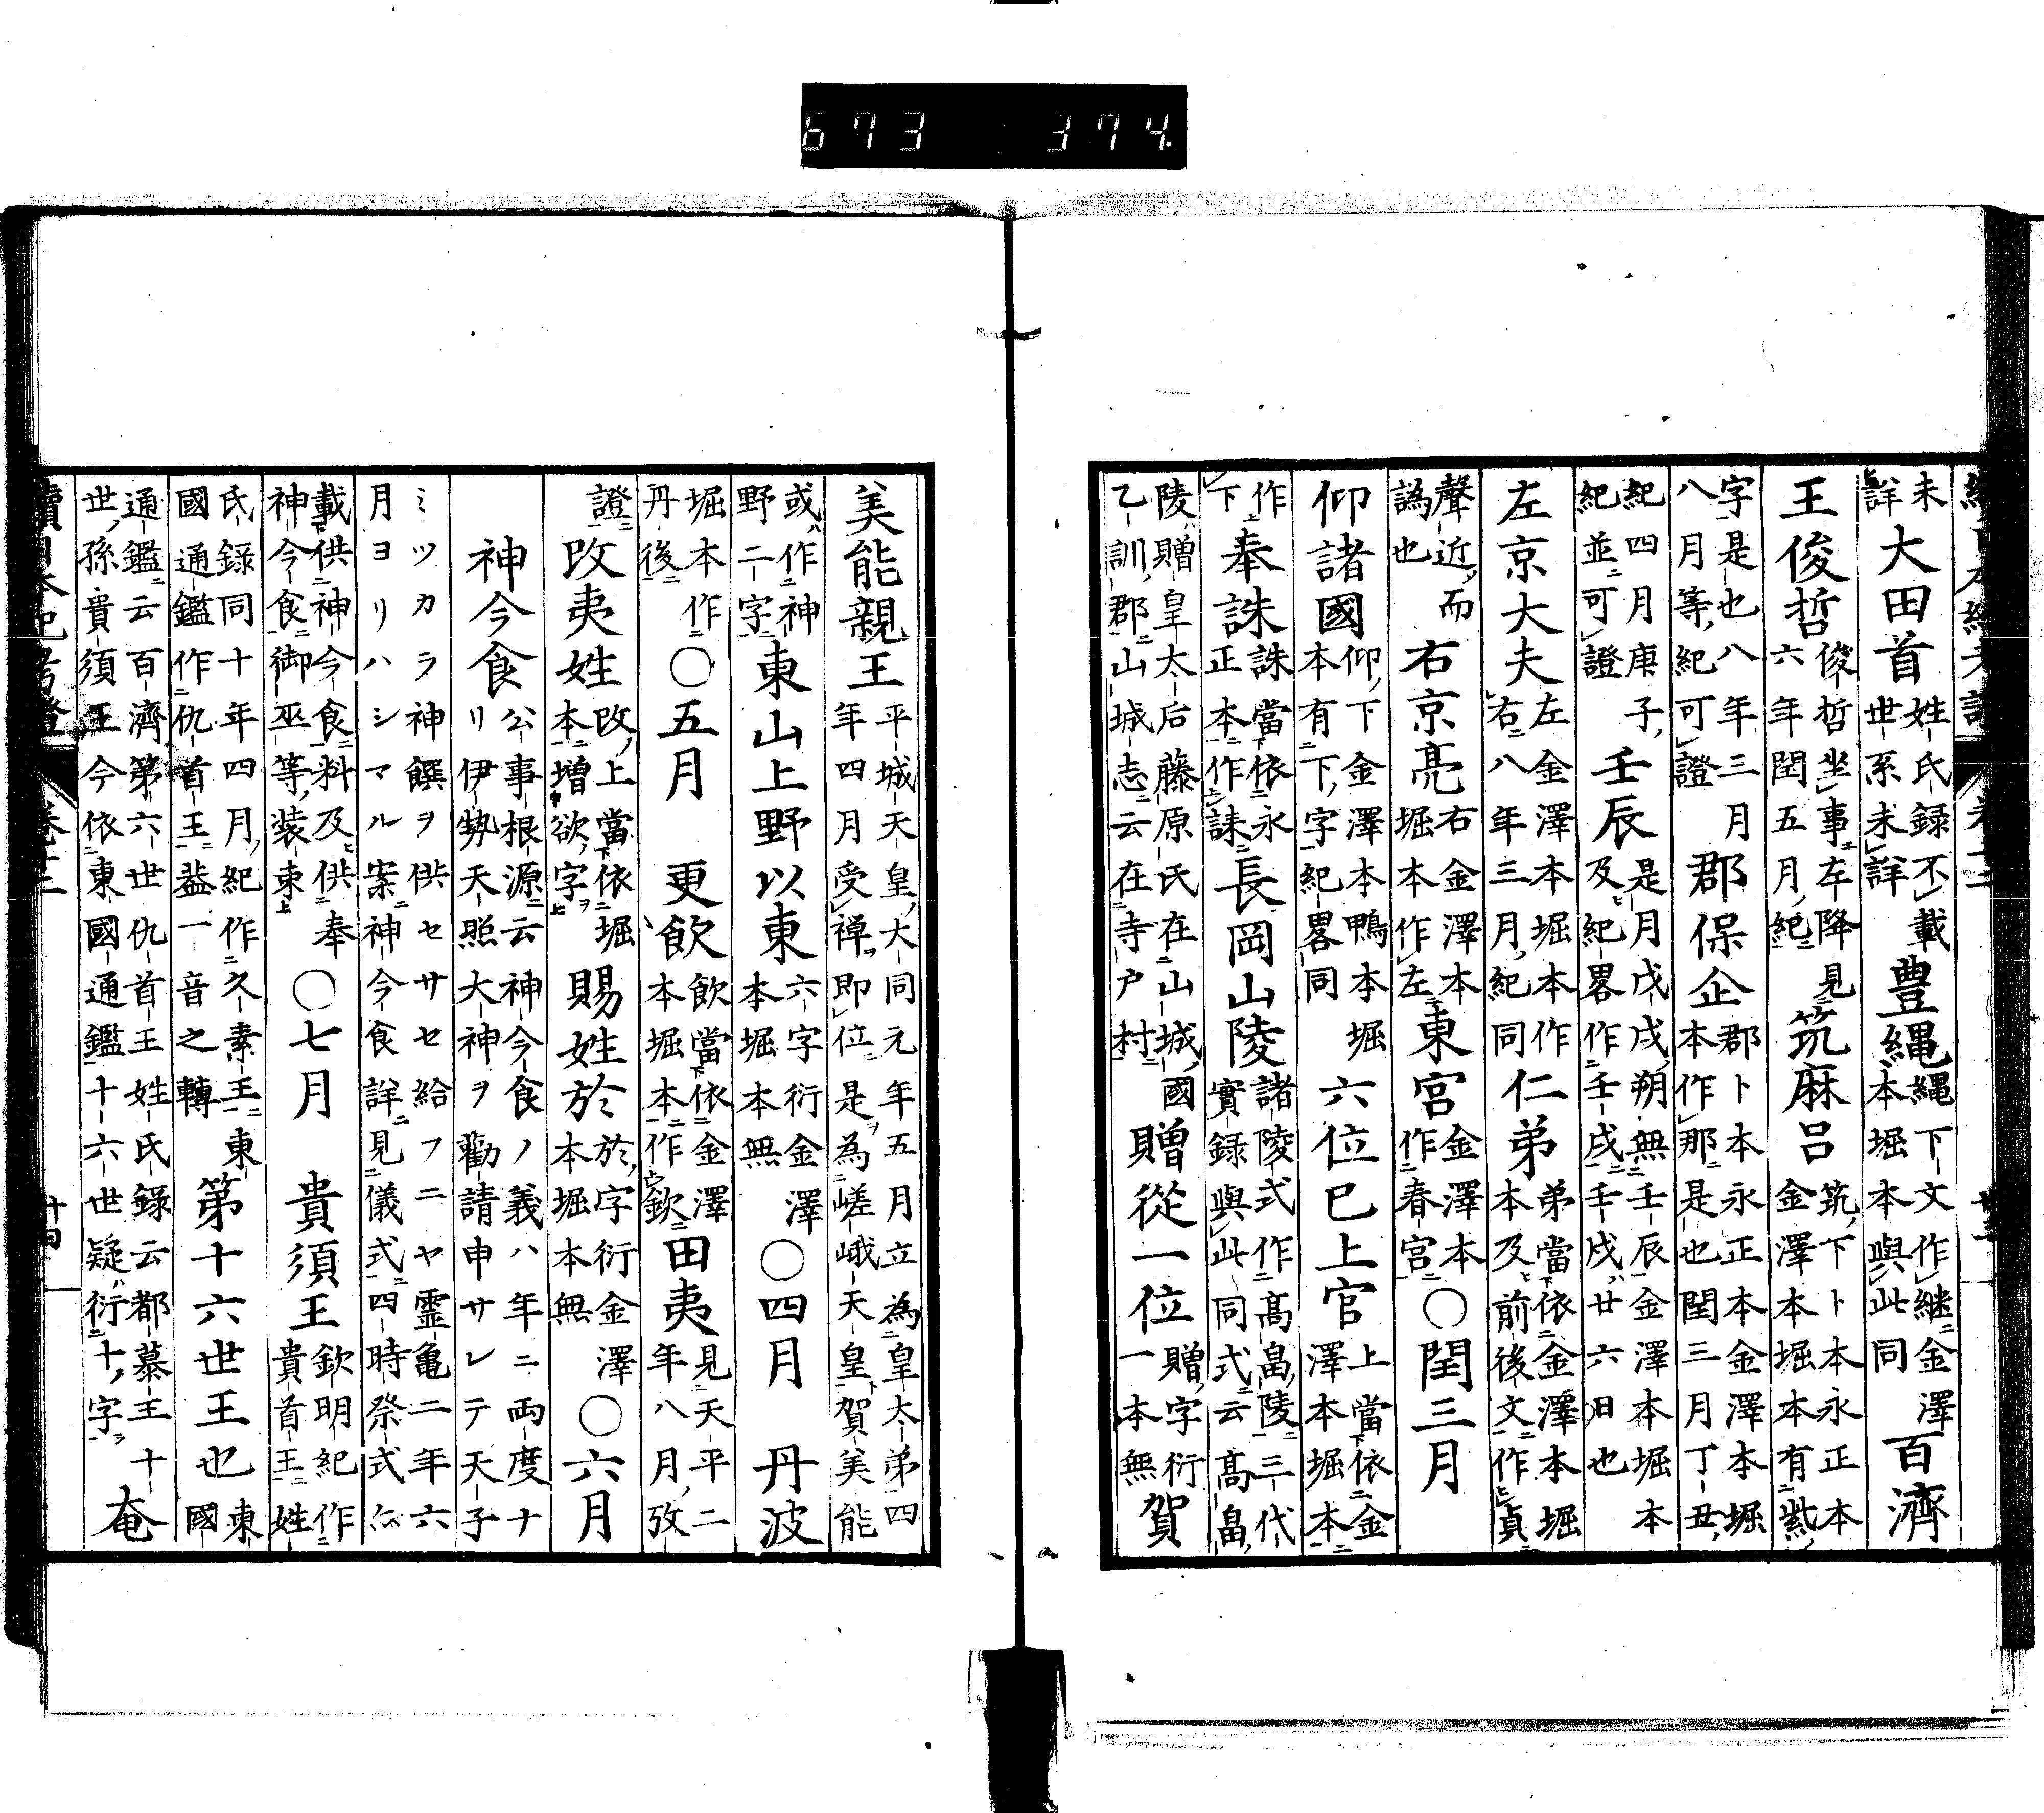 673 374
未詳大田首姓氏録不載世系未詳豊縄縄下文作継金澤本堀本與此同百濟
王俊哲俊哲坐事左降見六年閏五月紀筑麻呂筑下卜本永正本金澤本堀本有紫
字是也八年三月八月等紀可證郡保企郡卜本永正本金澤本堀本作那是也閏三月丁丑
紀四月庚子紀並可證壬辰是月戊戌朔無壬辰金澤本堀本及紀畧作壬戌壬戌廿六日也
左京大夫左金澤本堀本作右八年三月紀同仁弟弟當依金澤本堀本及前後文作貞
聲近而譌也右京亮右金澤本堀本作左東宮金澤本作春宮○閏三月
仰諸國仰下金澤本鴨本堀本有下字紀畧同六位已上官上當依金澤本堀本
作下奉誅誅當依永正本作誄長岡山陵諸陵式作髙畠陵三代實録與此同式云髙畠
陵ハ贈皇太后藤原氏在山城國乙訓郡山城志云在寺戸村贈從一位贈字衍一本無賀
美能親王平城天皇大同元年五月立為皇太弟四年四月受禅即位是為嵯峨天皇賀美能
或ハ作神野二字東山上野以東六字衍金澤本堀本無○四月 丹波
堀本作丹後○五月 更飲飲當依金澤本堀本作欽田夷見天平二年八月攷
證攺夷姓攺上當依堀本増欲字賜姓於於字衍金澤本堀本無○六月
神今食公事根源云神今食ノ義ハ年ニ両度ナリ伊勢天照大神ヲ勸請申サレテ天子
ミツカラ神饌ヲ供セサセ給フニヤ霊亀二年六月ヨリハシマル案神今食詳見儀式四時祭式
載供神今食料及供奉神今食御巫等装束○七月 貴須王欽明紀作貴首王姓
氏録同十年四月紀作久素王東國通鑑作仇首王盖一音之轉第十六世王也東國
通鑑云百濟第六世仇首王姓氏録云都慕王十世孫貴須王今依東國通鑑十六世疑ハ衍十字奄
續日本紀考證 卷十二 廿四